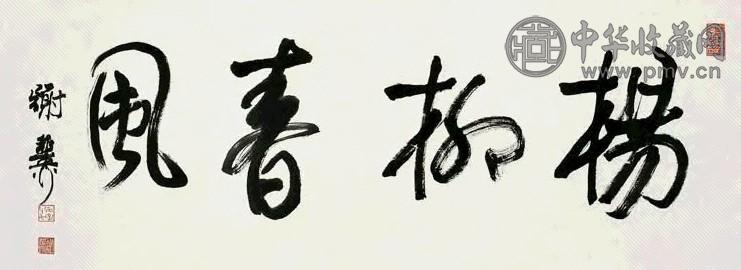 楊柳春風
中华收藏网
www.pmv.cn